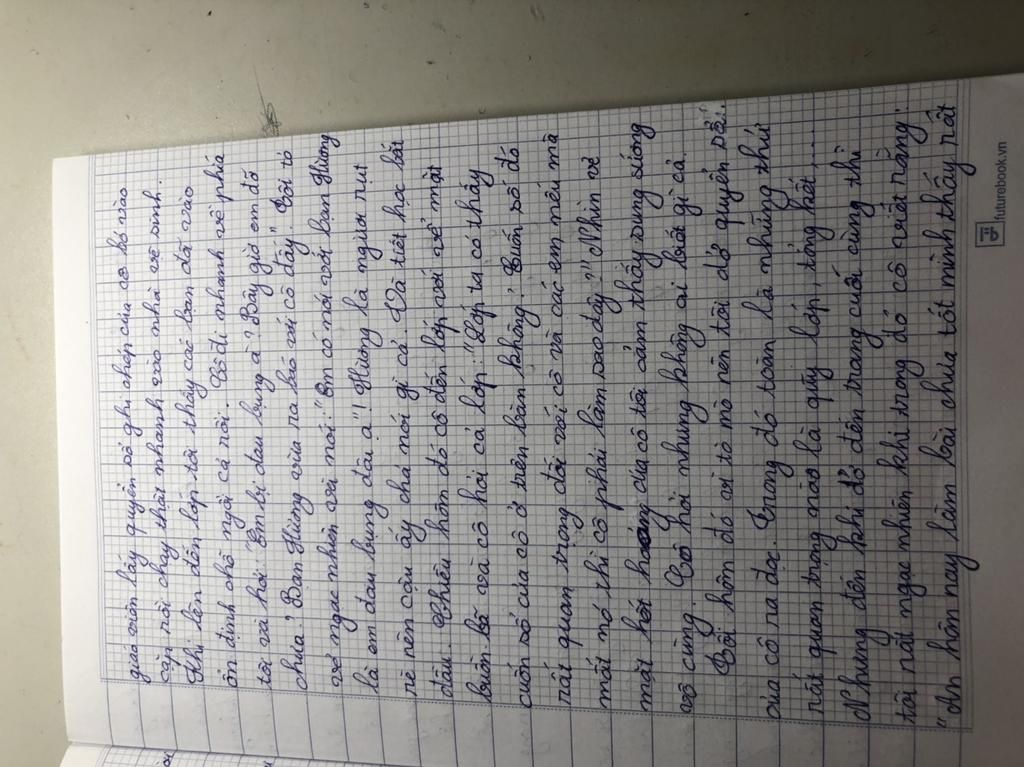 giáo viên lấy quyển sổ ghi chép của cô bỏ vào
cặp rồi chạy thật nhanh vào nhà vệ sinh.
Khi lên đến lớp tôi thấy các bạn đã vào
ổn định chỗ ngồi cả rồi. Cô đi nhanh về phía
tôi và hỏi: "Em bị đau bụng à? Bây giờ em đỡ
chưa? Bạn Hương vừa ra báo với cô đấy". Tôi tỏ
vẻ ngạc nhiên và nói: "Em có nói với bạn Hương
là em đau bụng đâu ạ"! Hương là người rụt
rè nên cậu ấy chả nói gì cả. Và tiết học bắt
đầu. Chiều hôm đó cô đến lớp với vẻ mặt
buồn bã và cô hỏi cả lớp: "Lớp ta có thấy
cuốn sổ của cô ở trên bàn không? Cuốn sổ đó
rất quan trọng đối với cô và các em nếu mà
mất nó thì cô phải làm sao đây?" Nhìn vẻ
mặt hốt hoảng của cô tôi cảm thấy sung sướng
vô cùng. Cô hỏi nhưng không ai biết gì cả.
Tối hôm đó vì tò mò nên tôi dở quyển sổ
của cô ra đọc. Trong đó toàn là những thứ
rất quan trọng nào là quỹ lớp, tổng kết,.....
Nhưng đến khi dở đến trang cuối cùng thì
tôi rất ngạc nhiên khi trong đó cô viết rằng:
"An hôm nay làm bài chưa tốt mình thấy rất
futurebook.vn